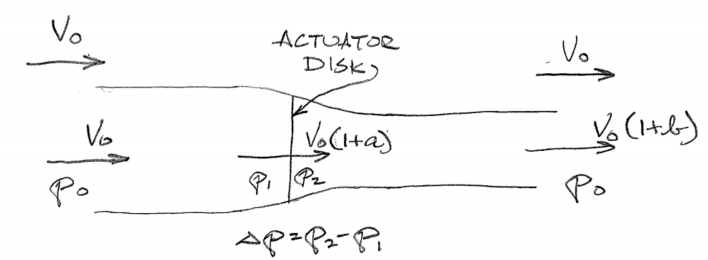 V₀
ACTUATOR
DISK
V₀
V₀
V₀(1+a)
V₀(1+b)
p₀
p₁
p₂
p₀
Δp=p₂-p₁